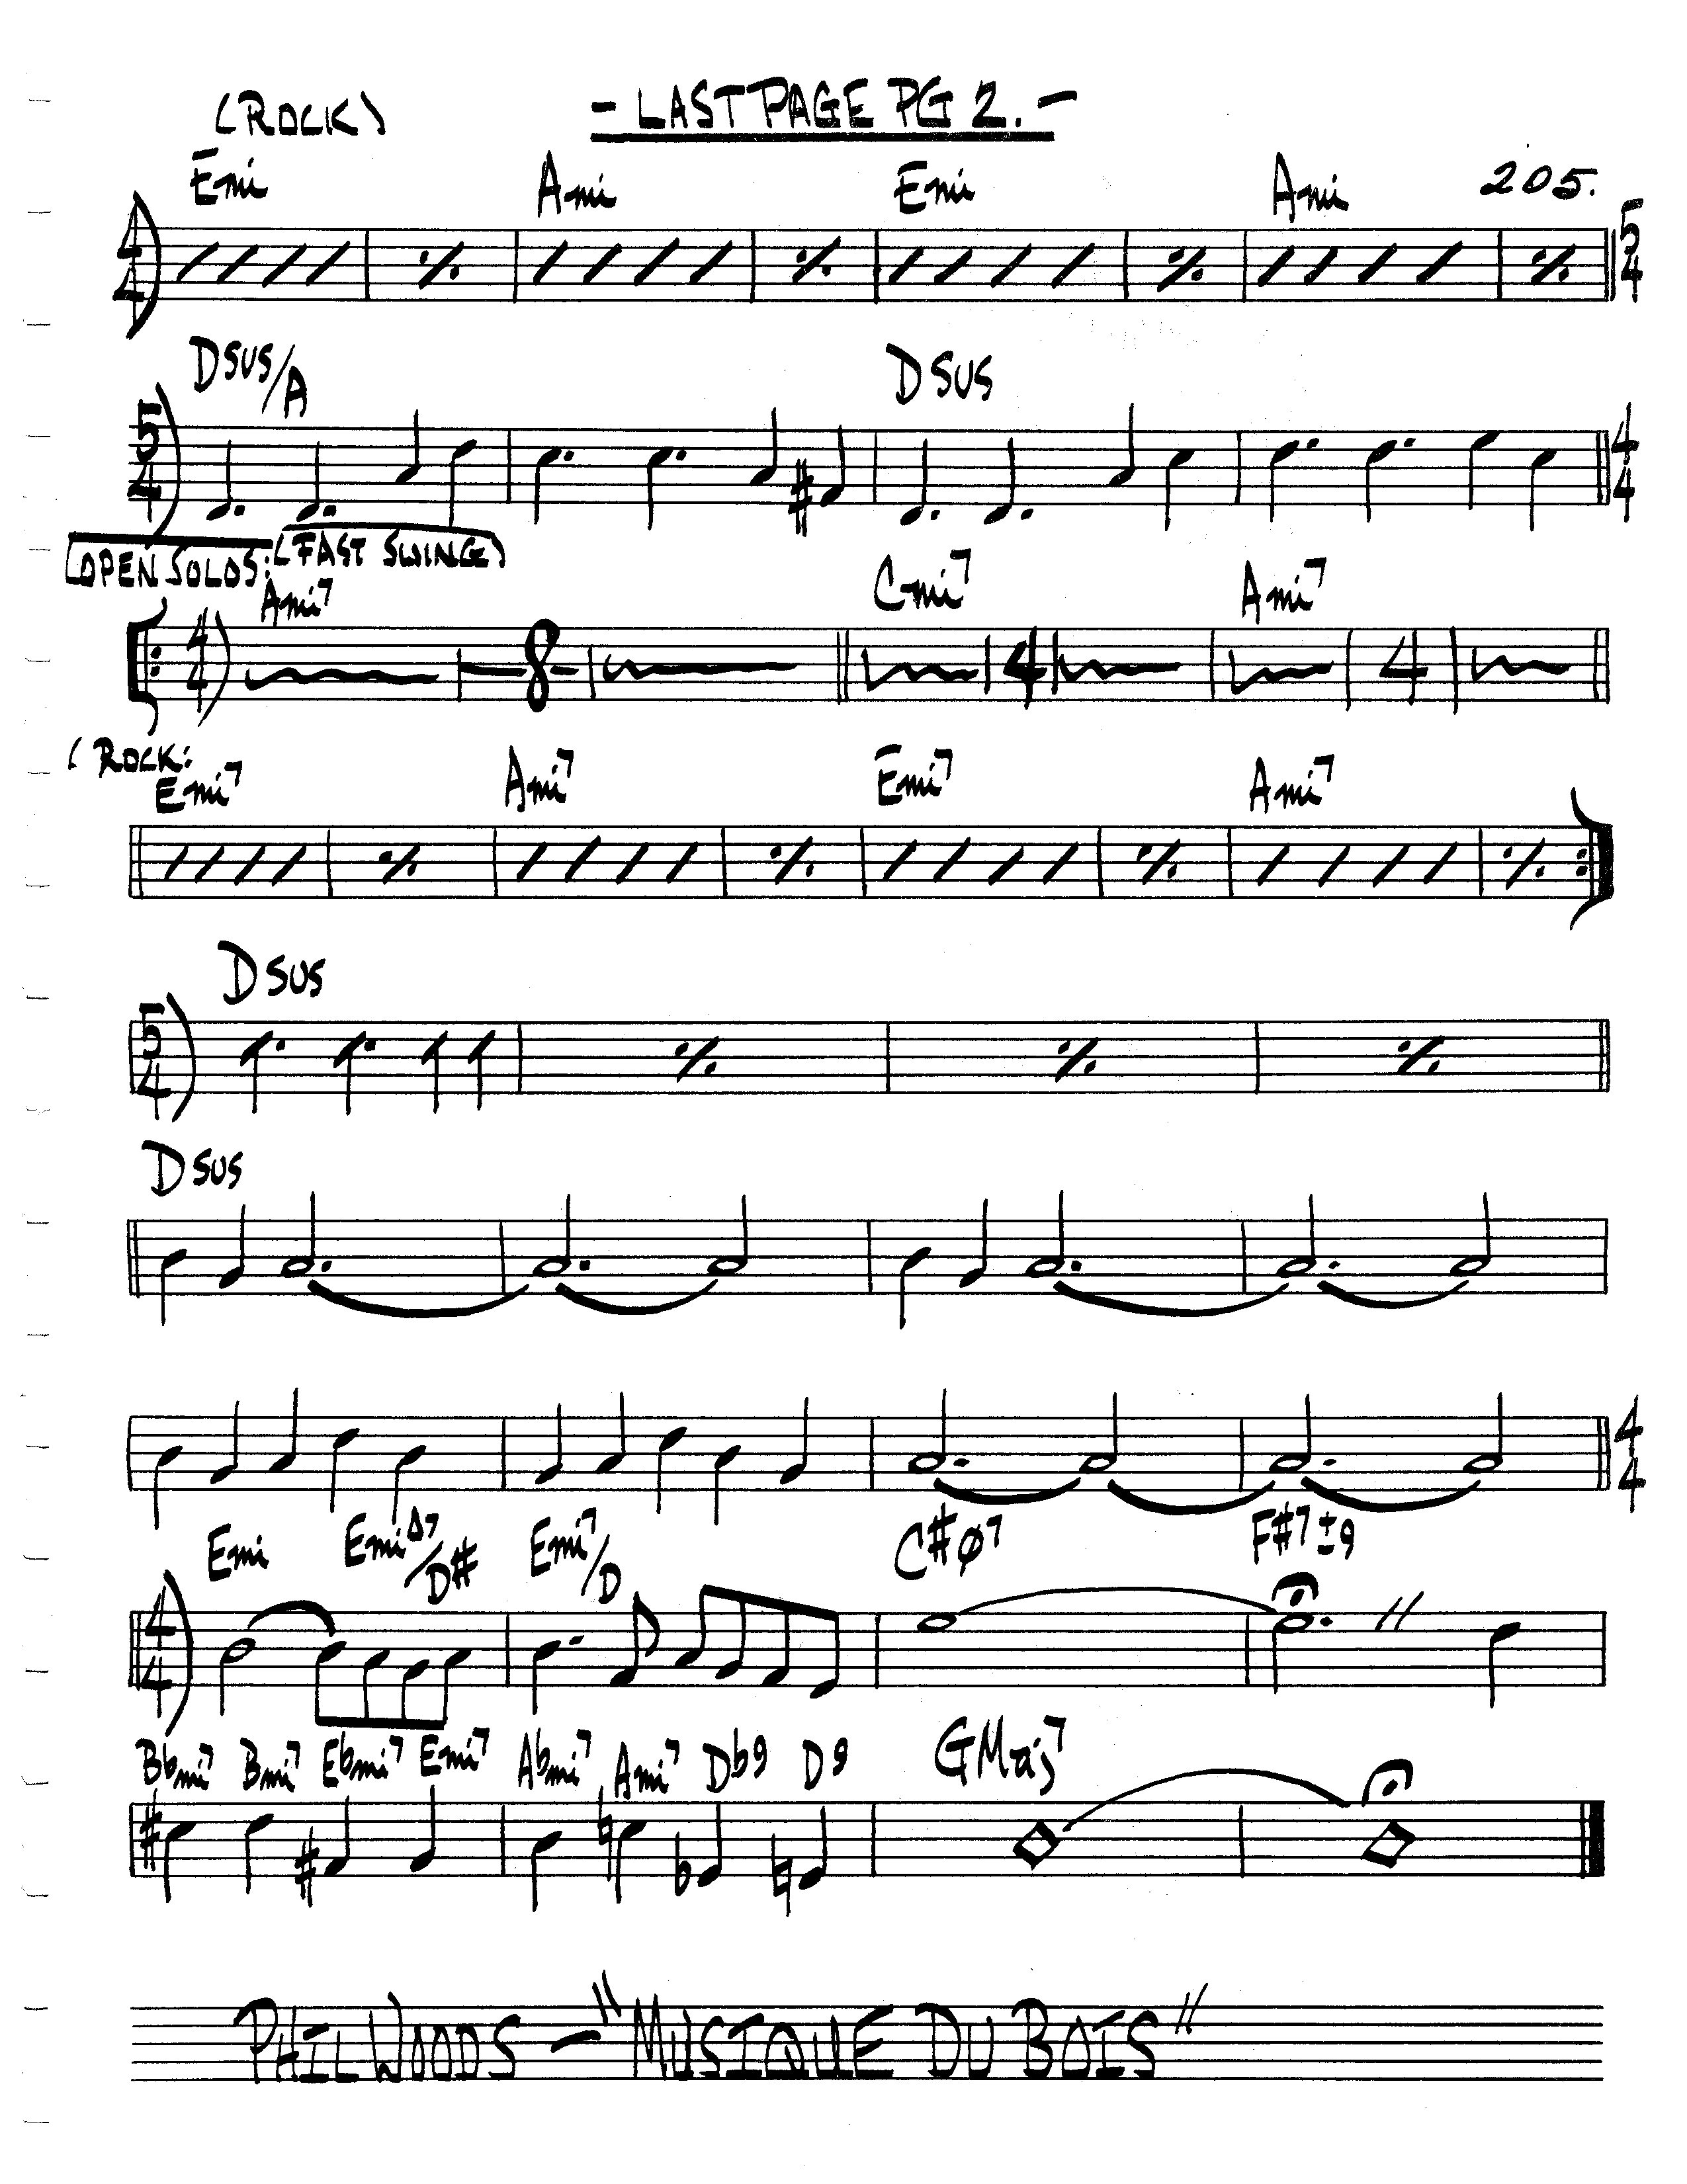 (ROCK) - LAST PAGE PG 2. -
Emi Ami Emi Ami 205.
4/4 5/4
Dsus/A Dsus
5/4 4/4
OPEN SOLOS: (FAST SWING)
Ami7 Cmi7 Ami7
4/4 8 4 4
(ROCK:
Emi7 Ami7 Emi7 Ami7
Dsus
5/4
Dsus
4/4
Emi EmiΔ7/D# Emi7/D C#ø7 F#7±9
4/4
Bbmi7 Bmi7 Ebmi7 Emi7 Abmi7 Ami7 Db9 D9 GMaj7
PHIL WOODS - "MUSIQUE DU BOIS"